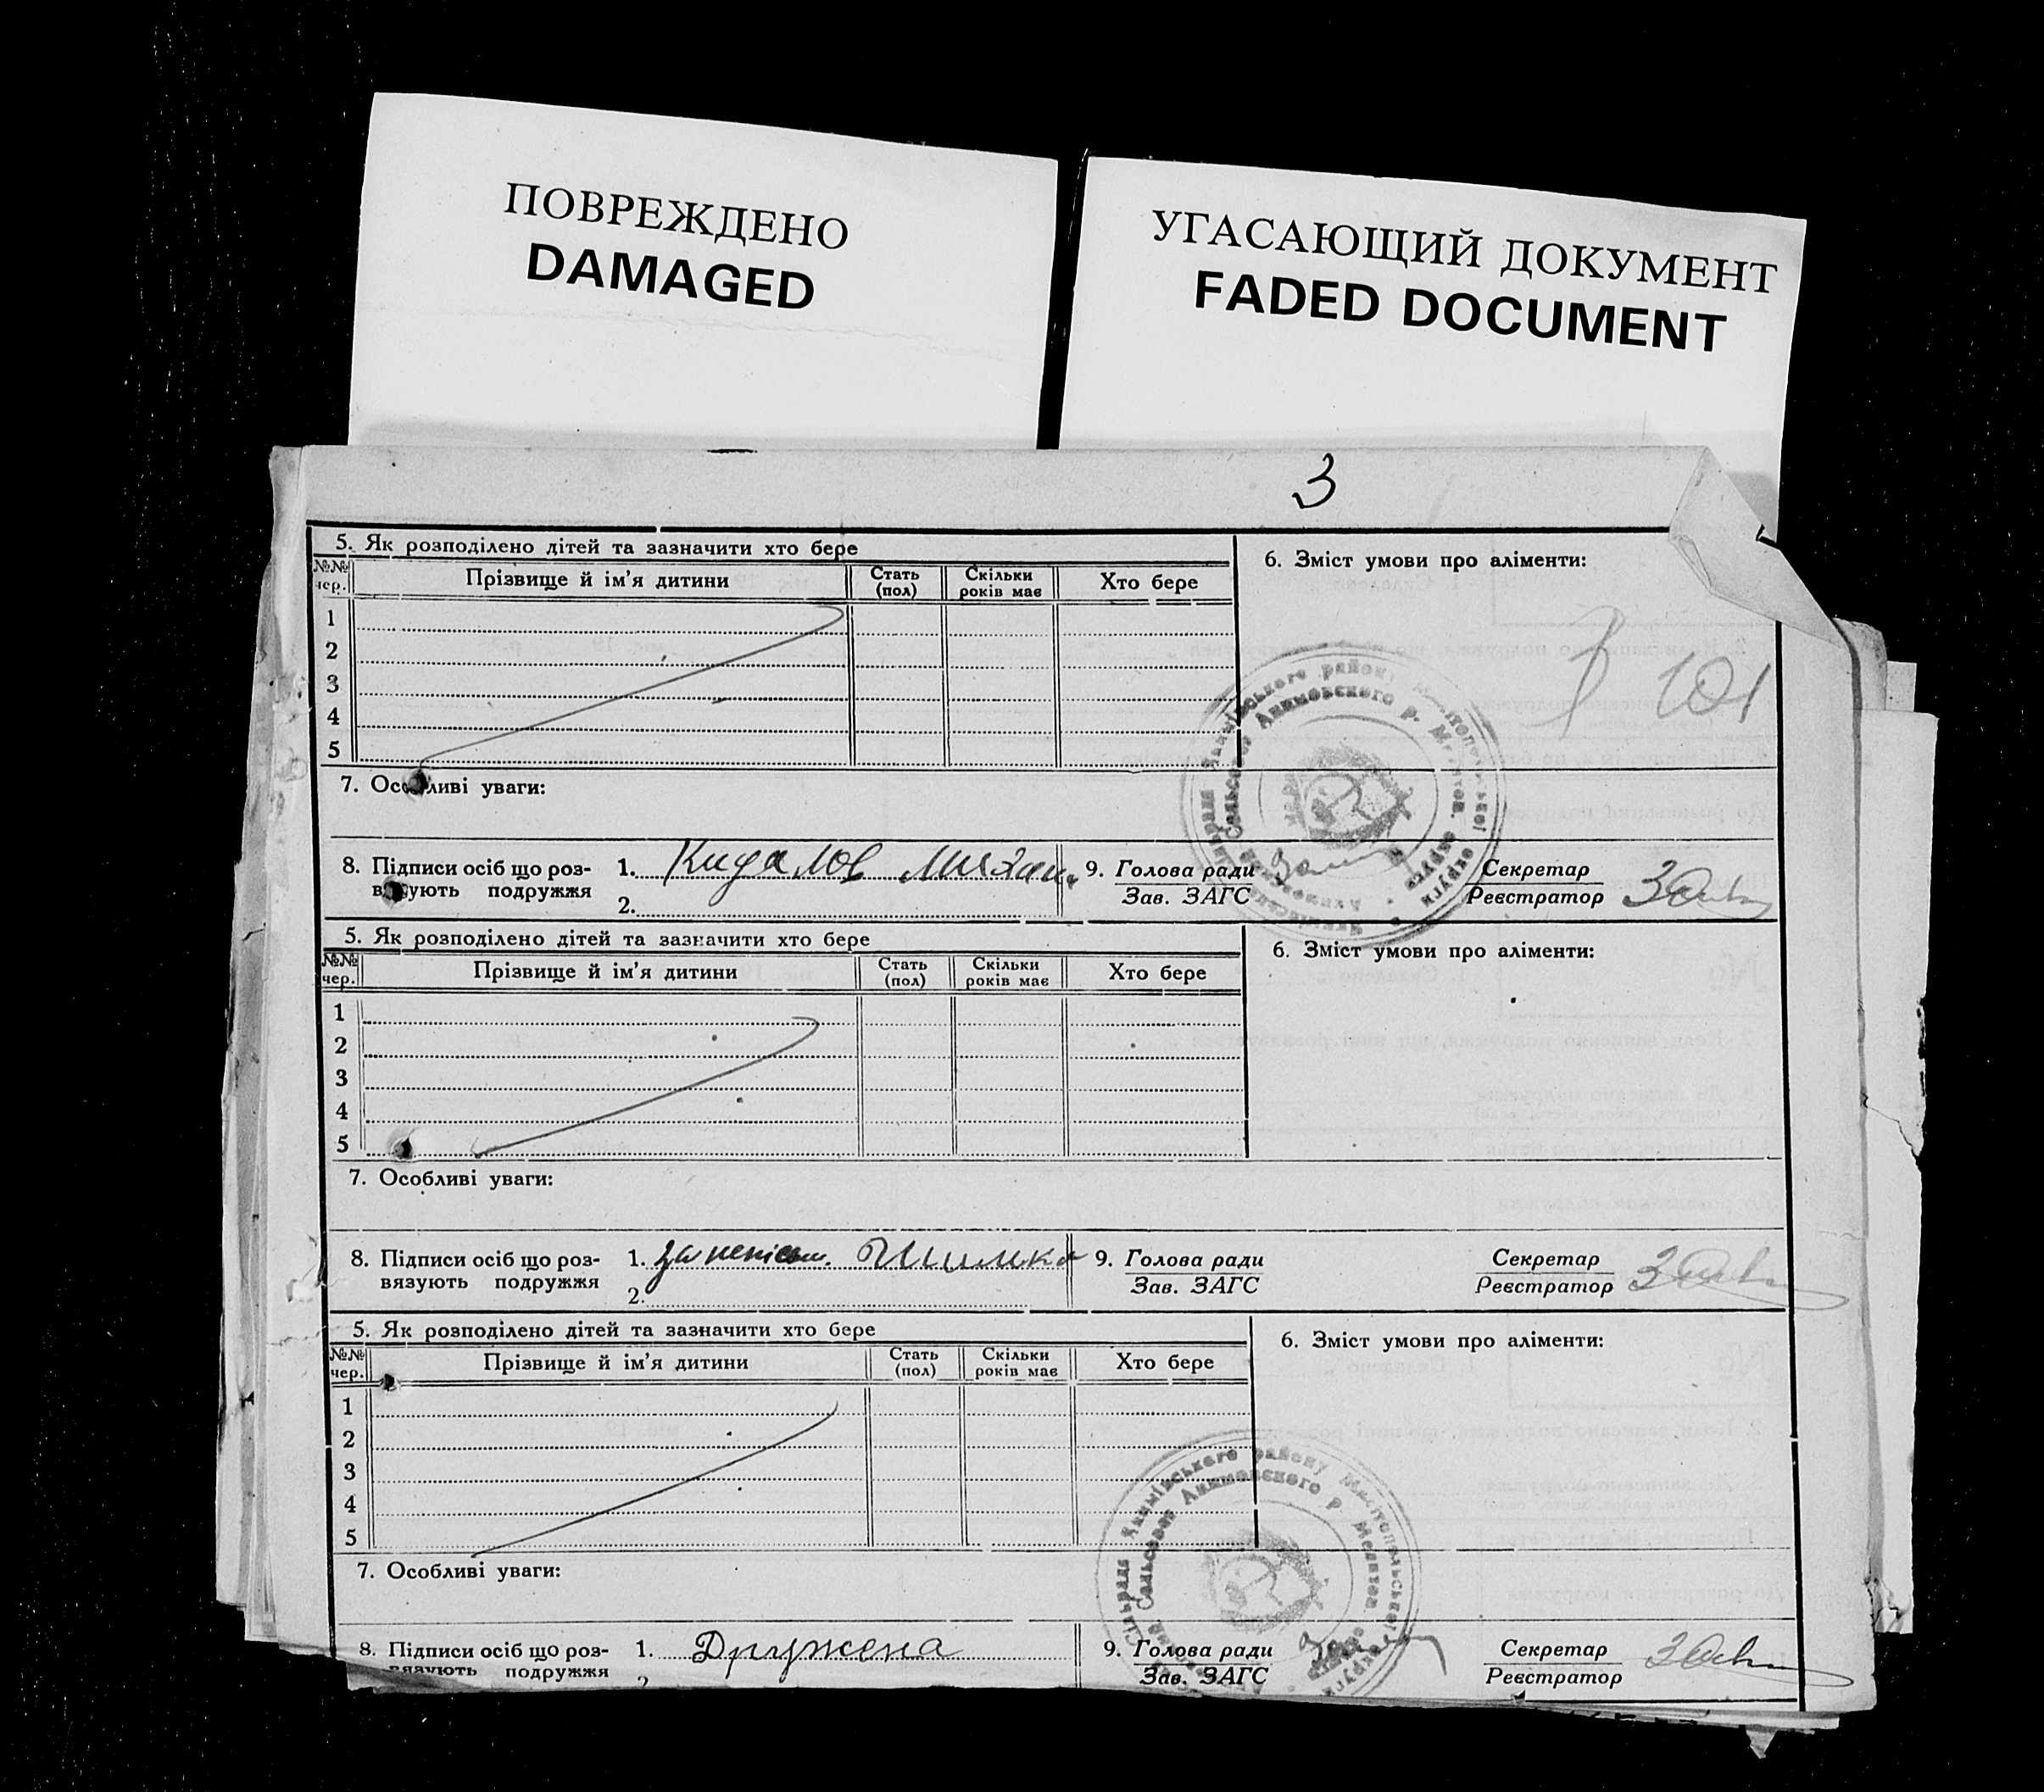 ПОВРЕЖДЕНО
DAMAGED
УГАСАЮЩИЙ ДОКУМЕНТ
FADED DOCUMENT
3
5. Як розподілено дітей та зазначити хто бере
6. Зміст умови про аліменти:
№№ чер.
Прізвище й ім'я дитини
Стать (пол)
Скільки років має
Хто бере
1
2
3
4
5
101
7. Особливі уваги:
8. Підписи осіб що роз-
вязують подружжя
1. Кидалов
2.
9. Голова ради
Зав. ЗАГС
Секретар
Реєстратор
5. Як розподілено дітей та зазначити хто бере
6. Зміст умови про аліменти:
№№ чер.
Прізвище й ім'я дитини
Стать (пол)
Скільки років має
Хто бере
1
2
3
4
5
7. Особливі уваги:
8. Підписи осіб що роз-
вязують подружжя
1.
2.
9. Голова ради
Зав. ЗАГС
Секретар
Реєстратор
5. Як розподілено дітей та зазначити хто бере
6. Зміст умови про аліменти:
№№ чер.
Прізвище й ім'я дитини
Стать (пол)
Скільки років має
Хто бере
1
2
3
4
5
7. Особливі уваги:
8. Підписи осіб що роз-
вязують подружжя
1. Дружена
2
9. Голова ради
Зав. ЗАГС
Секретар
Реєстратор